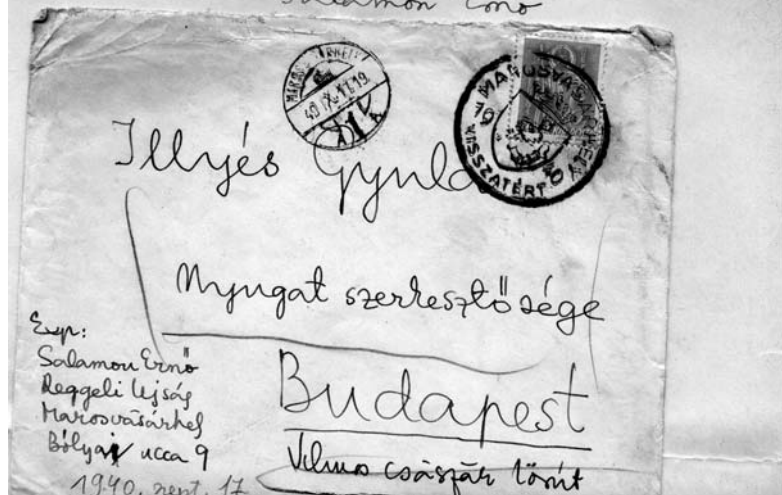 Salamon Ernő
40 IX. 17 19
MAROSVÁSÁRHELY
VISSZATÉRT
Illyés Gyula
Nyugat szerkesztősége
Budapest
Vilmos császár körút
Exp:
Salamon Ernő
Reggeli Ujság
Marosvásárhel
Bólyai ucca 9
1940. szept. 17